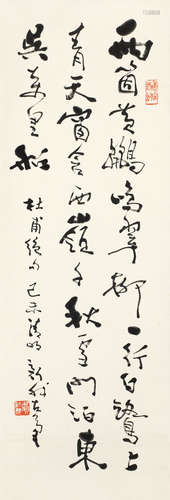 两箇黄鸝鳴翠柳一行白鷺上
青天窗含西嶺千秋雪門泊東
吴萬里船
杜甫絶句 己未清明